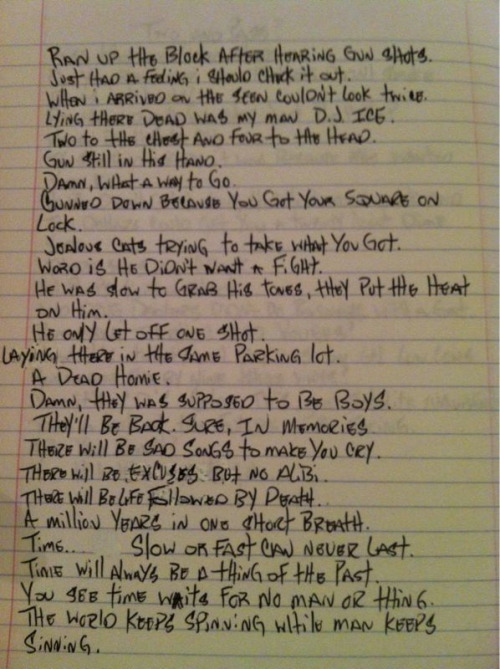 Ran up the Block After Hearing Gun Shots.
Just Had A Feeling i Should Check it out.
When i Arrived on the Seen Couldn't Look twice.
Lying There Dead was my man D.J. Ice.
Two to the Chest And Four to the Head.
Gun Still in His Hand.
Damn, What A Way to Go.
Gunned Down Because You Got Your Square on
Lock.
Jealous Cats Trying to take What You Got.
Word is He Didn't Want A Fight.
He was slow to Grab His Tones, they Put the Heat
on Him.
He only Let off one Shot.
Laying there in the Same Parking lot.
A Dead Homie.
Damn, they was supposed to Be Boys.
They'll Be Back. Sure, In Memories
There Will Be Sad Songs to make You Cry.
There will Be Excuses But no Alibi.
There will Be life Followed By Death.
A million Years in one Short Breath.
Time.... Slow or Fast Can Never Last.
Time Will Always Be A thing of the Past.
You See time Waits for no man or thing.
The World Keeps Spinning While man Keeps
Sinning.